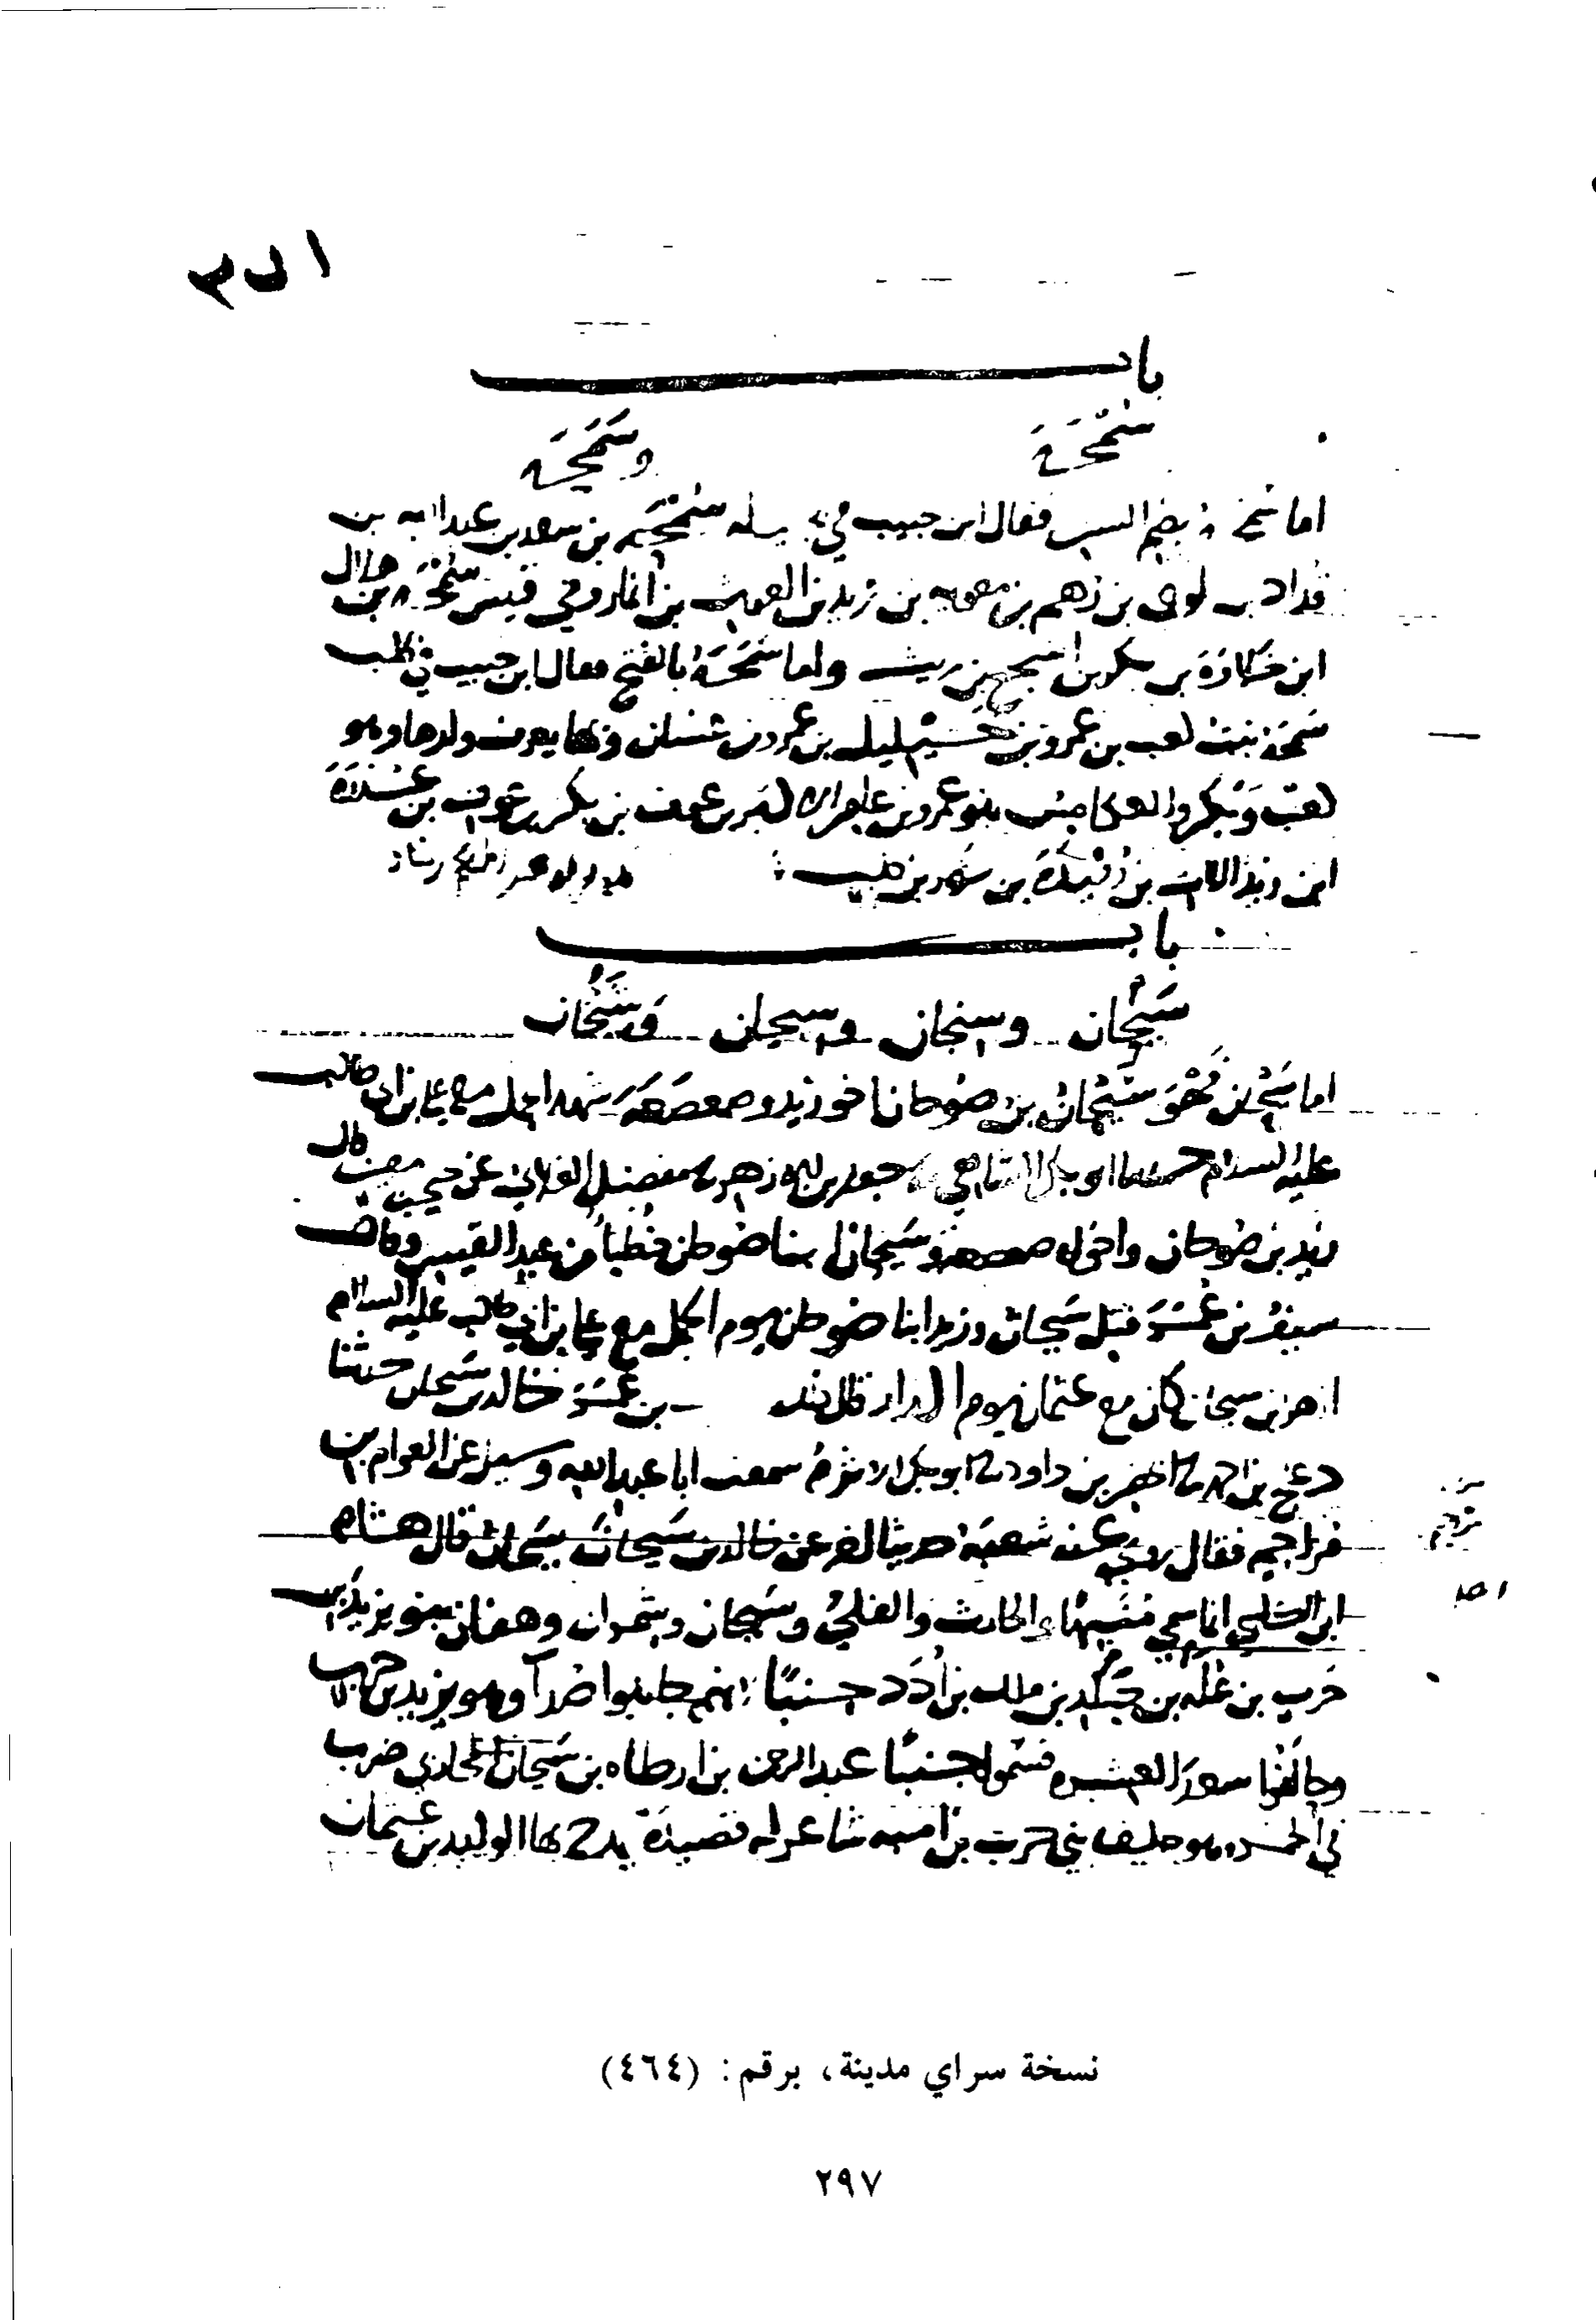 باب
سُحْمَة وسَحْمَة
اما سحمة بضم السين فقال ابن حبيب في بجيلة سُحْمَة بن سعد بن عبد الله بن
قداد بن لوى بن رهم بن معوية بن زيد بن الغوث بن انمار وفي قيس سحمة بن هلال
ابن خلاوة بن سبيع بن بكر بن اشجع بن ريث واما سَحَمَة بالفتح فقال ابن حبيب في كلب
سَحَمَة بنت كعب بن عمرو بن ليل بن عمرو بن غسان وبها يعرف ولدها وهو
بنو عمرو بن عامر الاكبر بن عوف بن بكر بن عوف بن عُذرَة
ابن زيد اللات بن رُفَيدَة بن ثور بن كلب
باب
سَيْحَان وسِنجان وسبحان وشَيْحان
اما سَيْحان فهو سَيْحان بن صُوحان اخو زيد وصعصعة شهد الجمل مع علي بن ابي طالب
عليه السلام ابو بكر الشافعي جعفر بن الازهر مفضل الغلابي عن يحيى بن معين قال
زيد بن صُوحان واخوه صعصعة وسَيحان ابنا صُوحان خُطَباء من عبد القيس وقال
سيف بن عُمَر قتل سَيحان وزيد ابنا صُوحان يوم الجمل مع علي بن ابي طالب عليه السلام
ازهر بن سيحان كان مع عثمان يوم الدار قاله سيف بن عُمَر خالد بن سَيحان حدثنا
دعلج بن احمد نا الخضر بن داود نا ابو بكر الاثرم سمعت ابا عبد الله وسيل عن العوام بن
مراجم فقال روى عنه شعبة حديثا لغر عن خالد بن سَيحان سَيحان قال هشام
ابن الكلبي انما سمي مُنَبِّه والحارث والغلي وسَيحان وشمران وهفان بنو يزيد بن
حرب بن عُلَه بن جَلْد بن ملك بن أُدَد جنبًا انهم جانبوا صُداء وهو يزيد بن حرب
وحالفوا سعد العشيرة فسموا جنبًا عبد الرحمن بن ارطاه بن سَيحان المحاربي ضرب
في الخمر وهو حليف بني حرب بن امية شاعر له قصيدة يمدح بها الوليد بن عثمان
نسخة سراي مدينة، برقم: (٤٦٤)
٢٩٧